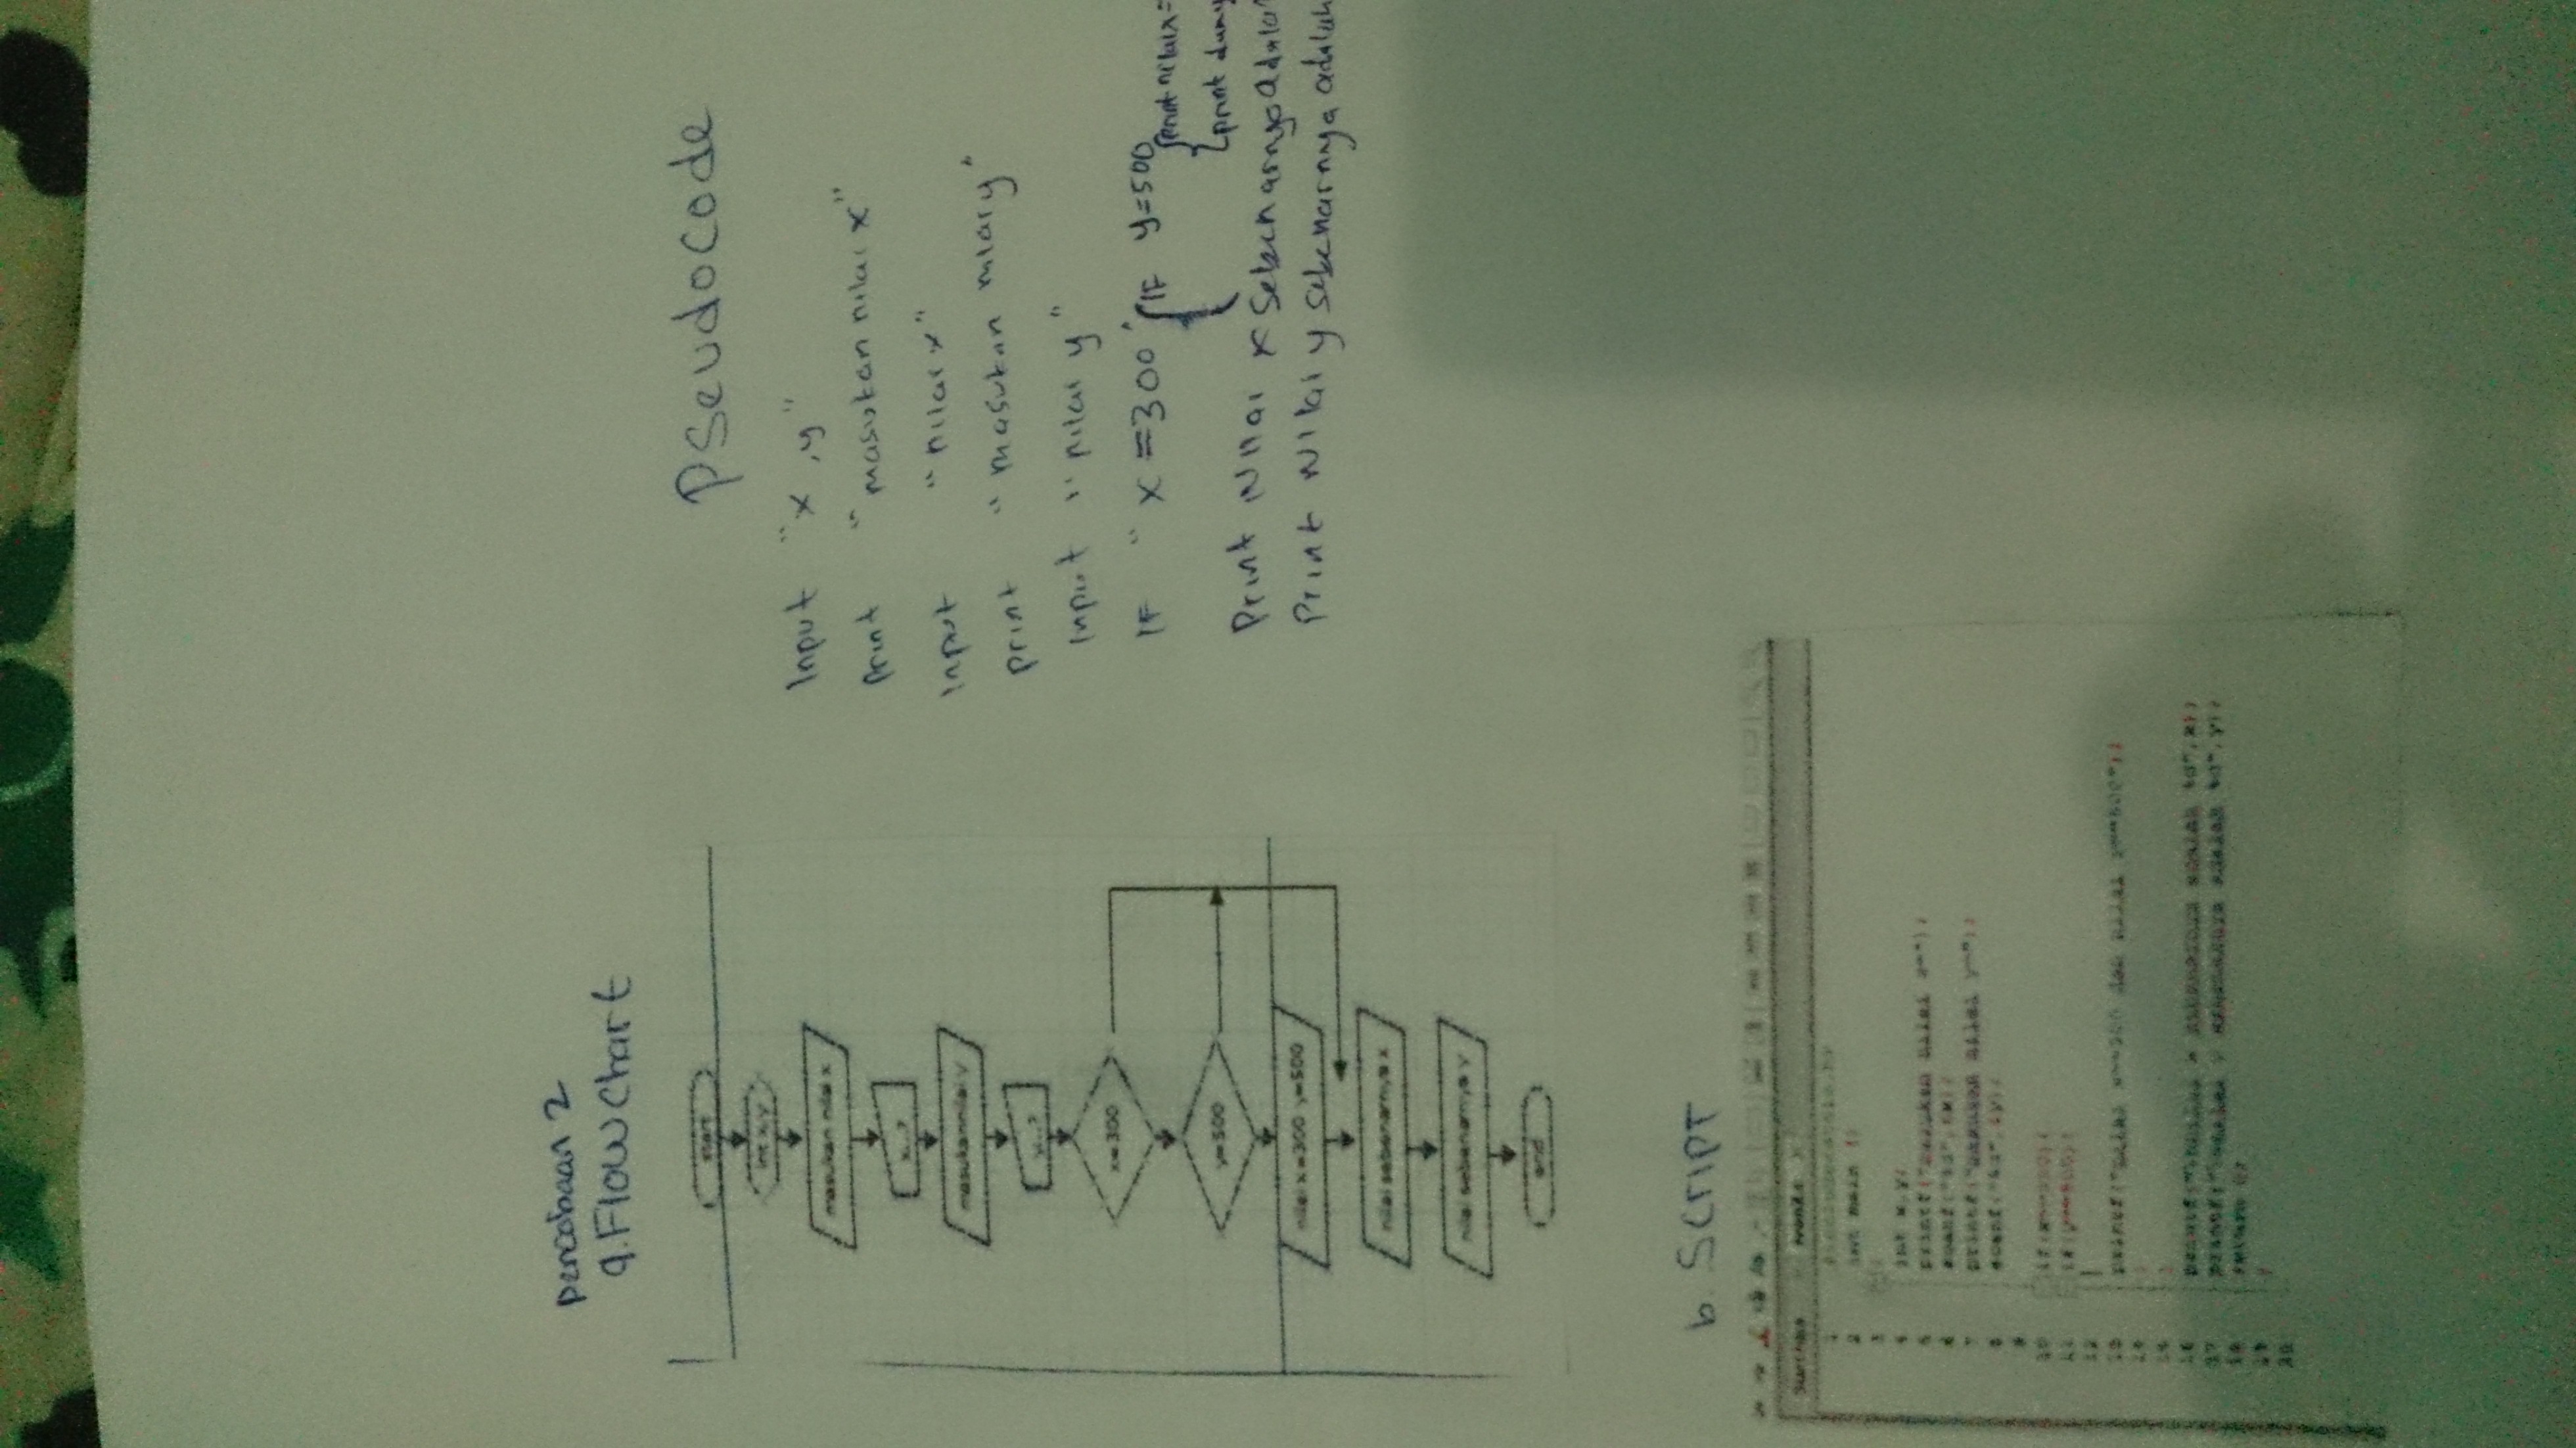 Percobaan 2
a. Flowchart
start
int x,y
masukan nilai x
x...?
masukan nilai y
y...?
x=300
y=500
nilai x=300 y=500
nilai sebenarnya x
nilai sebenarnya y
end
Pseudocode
Input "x ,y"
Print "masukan nilai x"
Input "nilai x"
print "masukan nilai y"
Input "nilai y"
IF "x =300" { IF y=500
{print nilai x=
{print
Print Nilai x Sebenarnya adalah
Print Nilai y sebenarnya adalah
b. Script
1
2 int main ()
3
4 int x,y;
5 printf("masukan nilai x=");
6 scanf("%d",&x);
7 printf("masukan nilai y=");
8 scanf("%d",&y);
9
10 if(x==300){
11 if(y==500)
12
13 printf("nilai x==300 dan nilai y==500");
16 printf("\nnilai x sebenarnya adalah %d",x);
17 printf("\nnilai y sebenarnya adalah %d",y);
18 return 0;
19 }
20